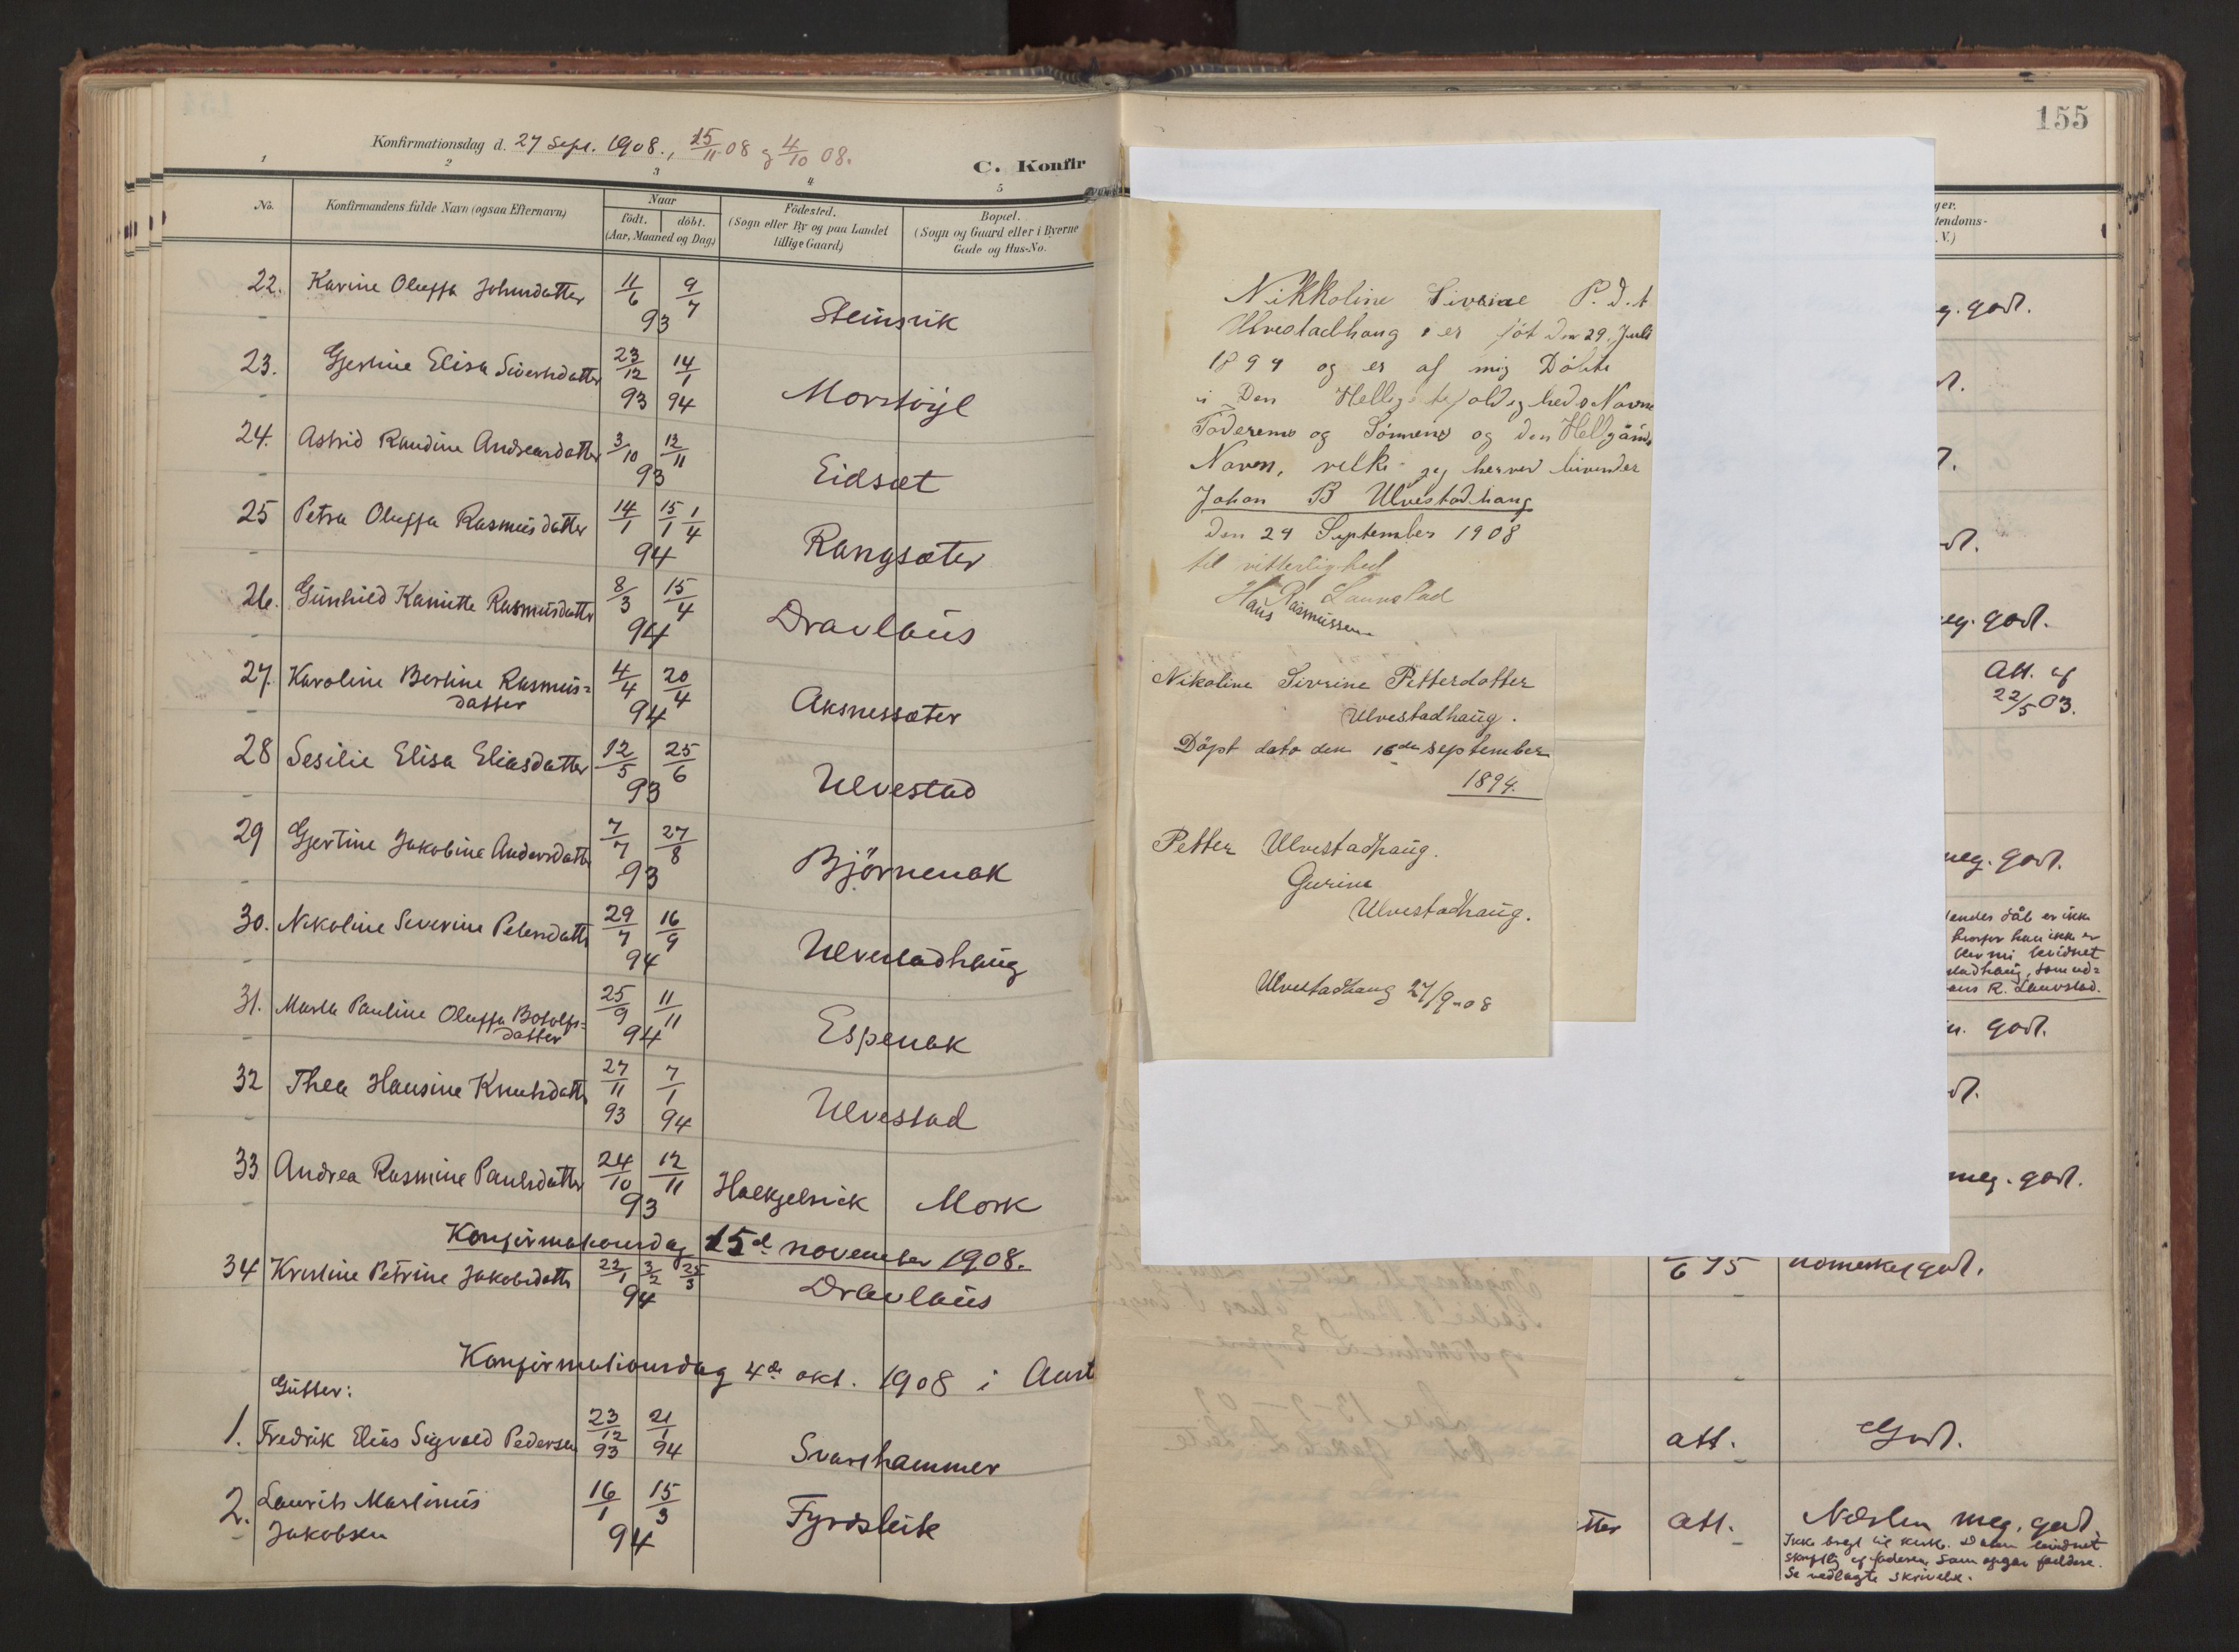 155
Konfirmationsdag d. 27 Sept. 1908., 15/11 08 og 4/10 08.
C. Konfir
1 2 3 4 5
No.
Konfirmandens fulde Navn (ogsaa Efternavn)
Naar
födt. döbt.
(Aar, Maaned og Dag)
Födested.
(Sogn eller By og paa Landet
tillige Gaard)
Bopæl.
(Sogn og Gaard eller i Byerne
Gade og Hus-No.
22. Karine Oluffa Johnsdatter 11/6 9/7 93 Steinsvik
23. Gjertine Elisa Sivertsdatter 23/12 93 14/1 94 Morstöyl
24. Astrid Raudine Andreasdatter 3/10 12/11 93 Eidsæt
25 Petra Oluffa Rasmusdatter 14/1 15/1 1/4 94 Rangsæter
26. Gunhild Kamitte Rasmusdatter 8/3 15/4 94 Dravlaus
27. Karoline Bertine Rasmus=
datter 4/4 20/4 94 Aksnessæter
28 Sesilie Elisa Eliasdatter 12/5 25/6 93 Ulvestad
29 Gjertine Jakobine Andersdatter 7/7 27/8 93 Björnenak
30. Nikoline Severine Petersdatter 29/7 16/9 94 Ulvestadhaug
31. Marta Pauline Oluffa Botolfs=
datter 25/9 11/11 94 Espenak
32 Thea Hansine Knutsdatter 27/11 93 7/1 94 Ulvestad
33 Andrea Rasmine Paulsdatter 24/10 12/11 93 Halkjelsvik Mork
Konfirmationsdag 15d november 1908.
34 Kristine Petrine Jakobsdatter 22/1 3/2 25/3 94 Dravlaus
Konfirmationsdag 4de okt. 1908 i Aust
Gutter:
1. Fredrik Elias Sigvald Pedersen 23/12 93 21/1 94 Svarthammer
2. Laurits Martinus
Jakobsen 16/1 15/3 94 Fyrdsleite
Nikkoline Sivrine P. d. t
Ulvestadhaug er föt den 29. Juli
1894 og er af mig Döbte
i Den Hellige Navn
Faderens og Sönnens og den Hellgånds
Naven, velke jeg herved bivender
Johan B Ulvestadhaug
den 29 September 1908
til vitterlighed
Hans Rasmussen Launstad
Nikoline Sivrine Petterdatter
Ulvestadhaug.
Döpt dato den 16de september
1894.
Petter Ulvestadhaug.
Gurine
Ulvestadhaug.
Ulvestadhaug 27/9-08
ger.
tendoms-
.V.)
g. god.
eg. god.
Att. af
22/5 03.
meg. god.
endes dåb er ikke
hvorfor hun ikke er
blevni bevidnet
stadhaug, som ud=
ans R. Lauvstad.
god.
meg. god.
6 95
god.
att. God.
tter att. Næsten meg. god
Ikke bragt til kirke. Daaben bevidnet
skriftlig af faderen, som opgav faddere.
Se vedlagte skrivelse.